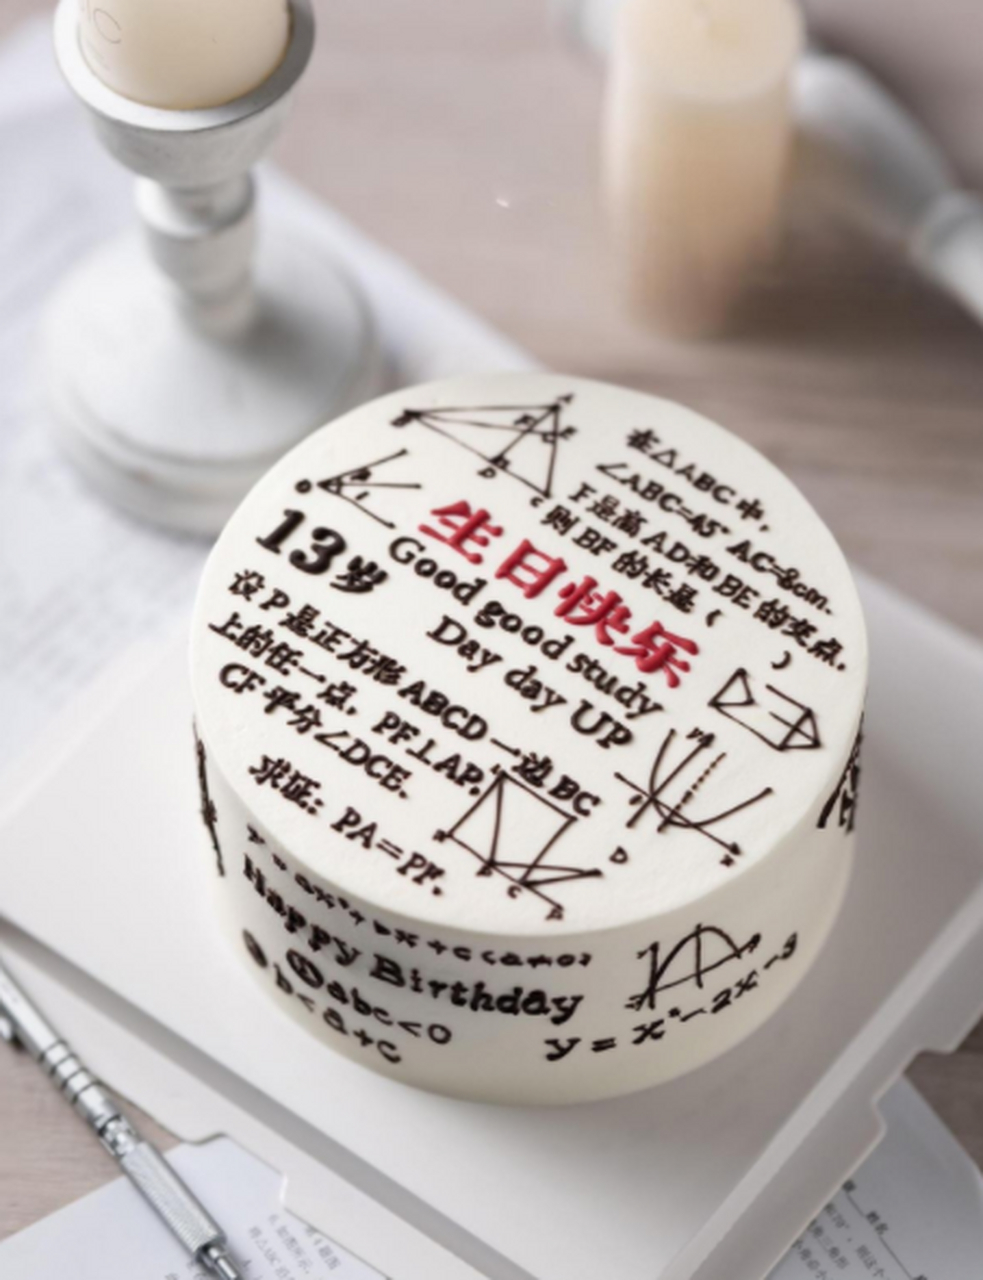 在△ABC中,
∠ABC=45° AC=8cm.
F是高AD和BE的交点.
则BF的长是( )
生日快乐
13岁
Good good study
Day day UP
设P是正方形ABCD一边BC
上的任一点, PF⊥AP.
CF平分∠DCE.
求证: PA=PF.
Happy Birthday
①abc<0
b<a+c
y=x²-2x-y